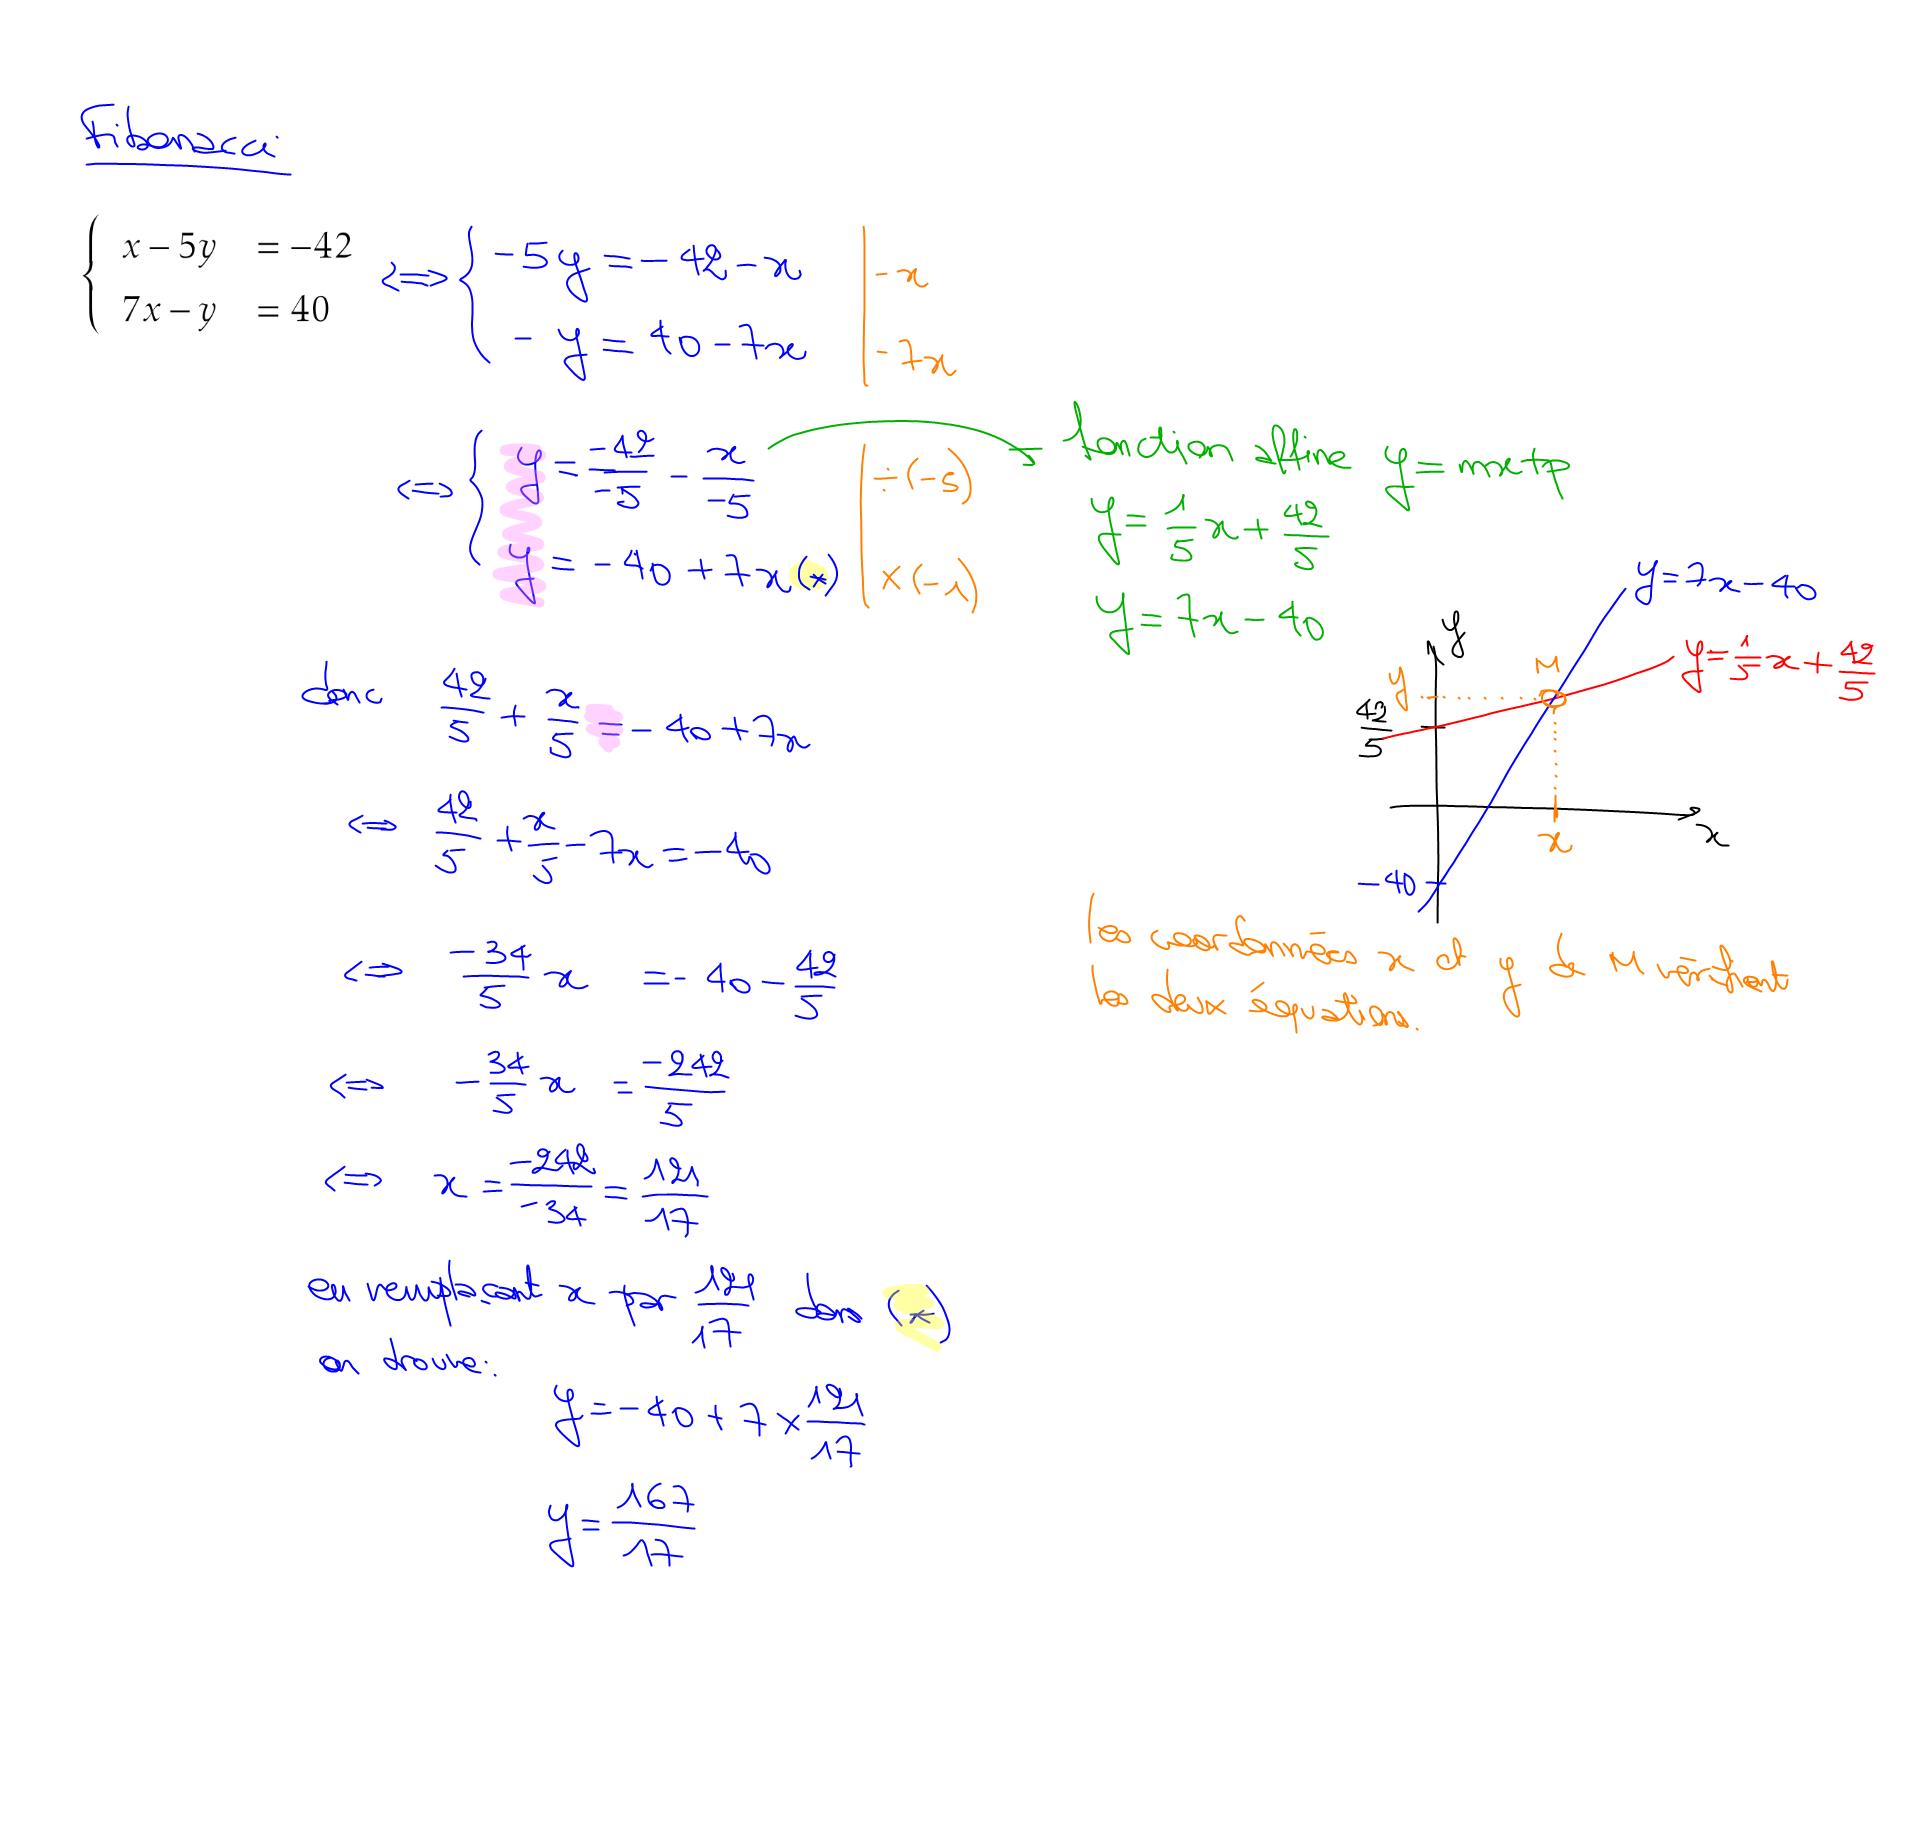 Fibonacci
x − 5y = −42
7x − y = 40
⟺ { −5y = −42 − x | −x
− y = 40 − 7x | −7x
⟺ { y = −42/−5 − x/−5 | ÷(−5)
y = −40 + 7x (*) | ×(−1)
→ fonction affine y = mx+p
y = 1/5 x + 42/5
y = 7x − 40
donc 42/5 + x/5 = −40 + 7x
⟺ 42/5 + x/5 − 7x = −40
⟺ −34/5 x = −40 − 42/5
⟺ −34/5 x = −242/5
⟺ x = −242/−34 = 121/17
en remplaçant x par 121/17 dans (*)
on trouve:
y = −40 + 7 × 121/17
y = 167/17
y = 7x − 40
y
M
y = 1/5 x + 42/5
y
42/5
x
x
−40
les coordonnées x et y de M vérifient
les deux équations.